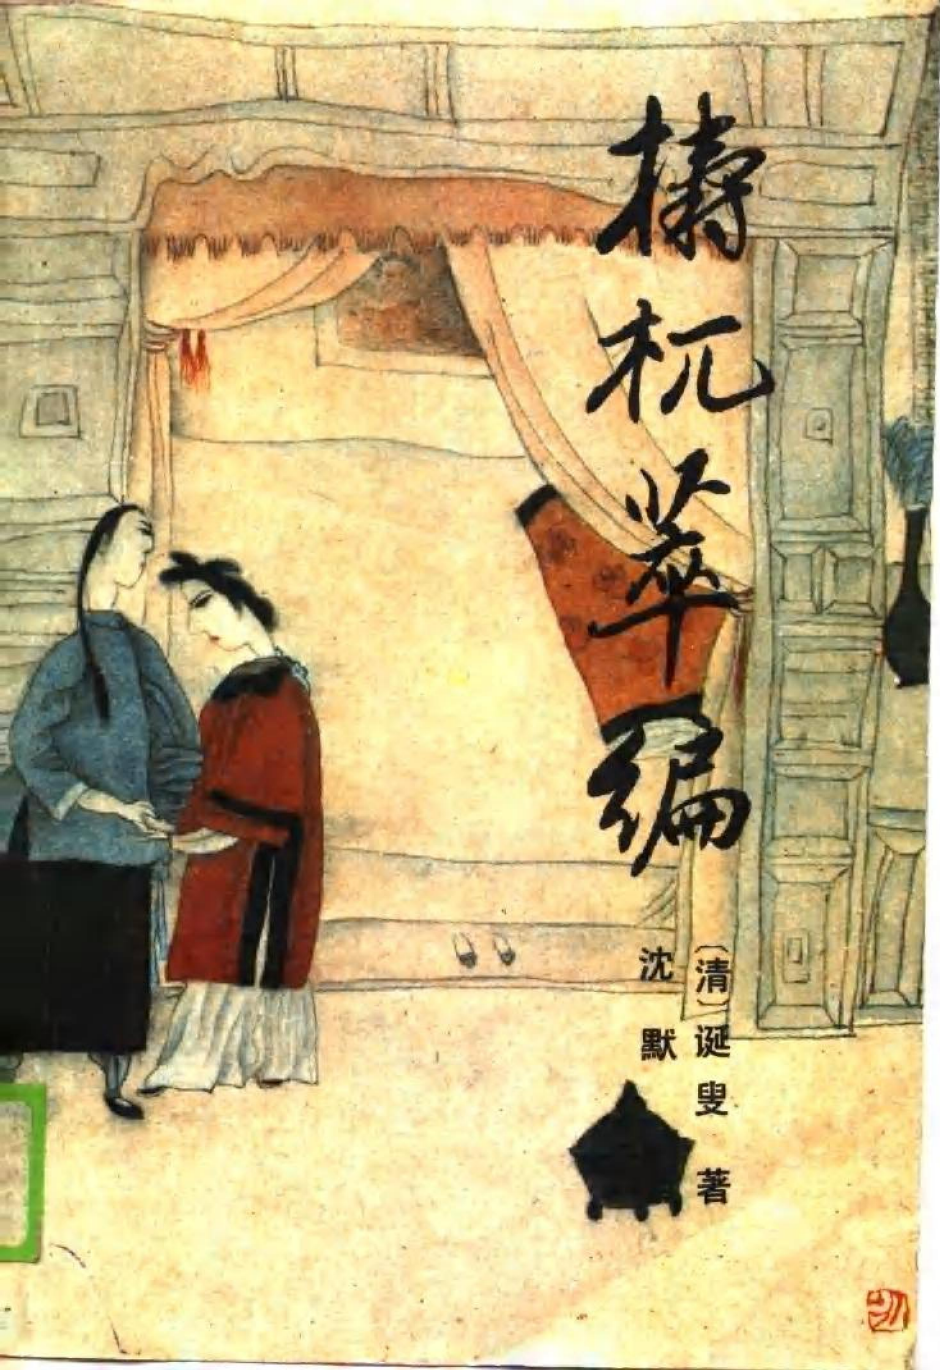 梼杌萃编
〔清〕诞叟 著
沈默